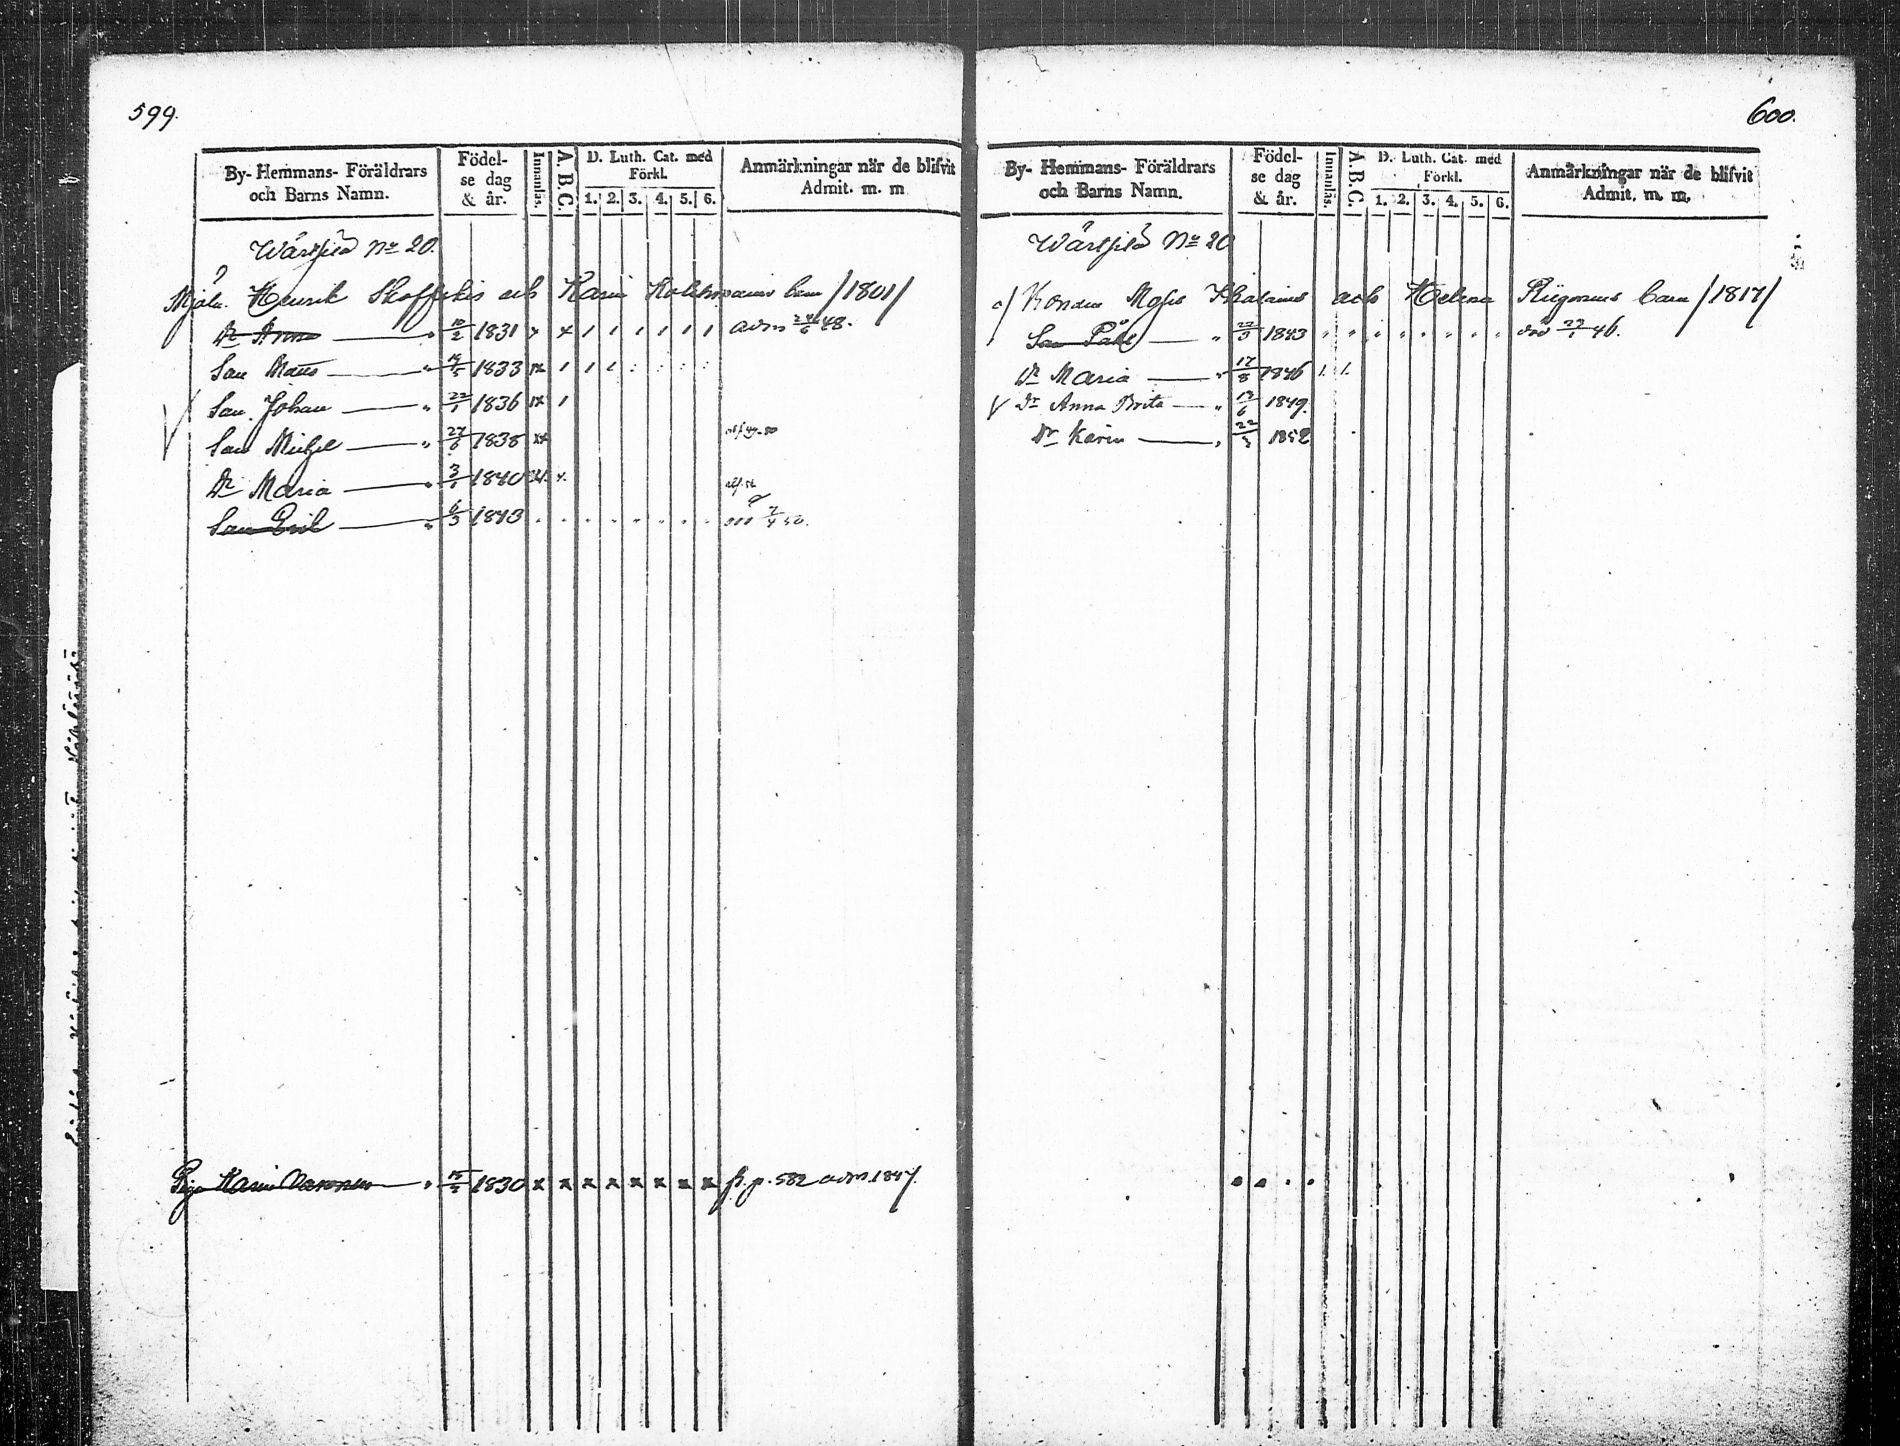 599.
By- Hemmans- Föräldrars och Barns Namn.
Födel- se dag & år.
Innanläs.
A.B.C.
D. Luth. Cat. med Förkl.
1. 2. 3. 4. 5. 6.
Anmärkningar när de blifvit Admit. m. m
Wärtsilä No 20.
Henrik och Karin barn /1801/
Dr Anna " 1831 x x 1 1 1 1 1 1 adm 24/6 48.
Son " 1833 1 1 1
Son Johan " 22/1 1836 1
Son Michel " 27/6 1838
Dr Maria " 1840 x
Son Erik " 6/3 1843 7/4 50.
Karin " 1830 x x x x x x x x fr. p. 582 adm 1847.
600.
By- Hemmans- Föräldrars och Barns Namn.
Födel- se dag & år.
Innanläs.
A.B.C.
D. Luth. Cat. med Förkl.
1. 2. 3. 4. 5. 6.
Anmärkningar när de blifvit Admit. m. m.
Wärtsilä No 20
och Helena barn /1817/
Son Påhl " 1843 död 46.
Dr Maria " 17/8 1846 1. 1.
Dr Anna Brita " 13/6 1849.
Dr Karin " 1852